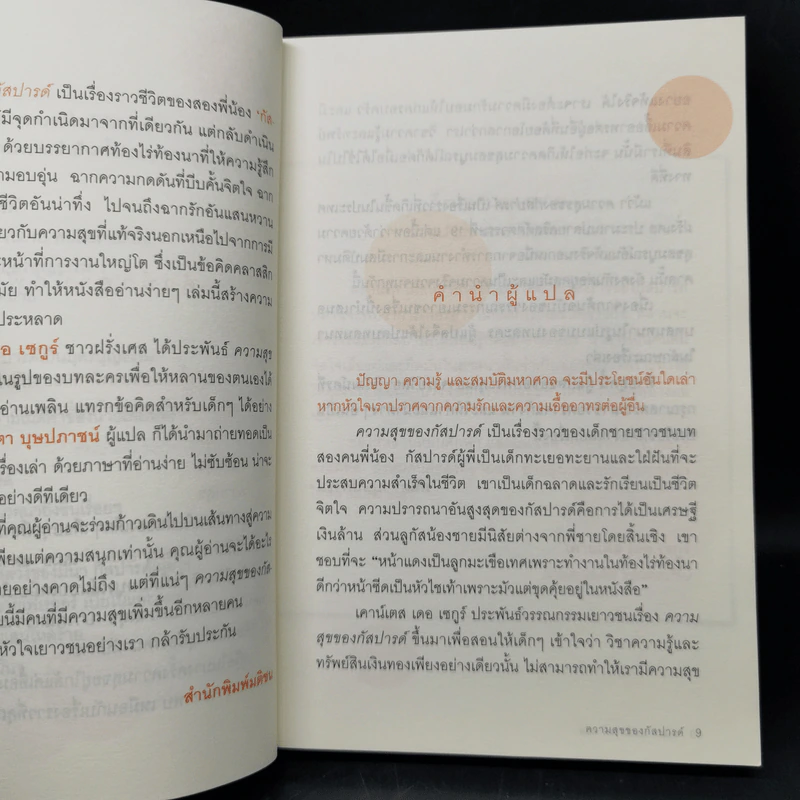 กัสปารด์ เป็นเรื่องราวชีวิตของสองพี่น้อง 'กัส-
มีจุดกำเนิดมาจากที่เดียวกัน แต่กลับดำเนิน
ด้วยบรรยากาศท้องไร่ท้องนาที่ให้ความรู้สึก
มอบอุ่น ฉากความกดดันที่บีบคั้นจิตใจ ฉาก
ชีวิตอันน่าทึ่ง ไปจนถึงฉากรักอันแสนหวาน
ยวกับความสุขที่แท้จริงนอกเหนือไปจากการมี
ะหน้าที่การงานใหญ่โต ซึ่งเป็นข้อคิดคลาสสิก
มัย ทำให้หนังสืออ่านง่ายๆ เล่มนี้สร้างความ
ประหลาด
อ เซกูร์ ชาวฝรั่งเศส ได้ประพันธ์ ความสุข
นรูปของบทละครเพื่อให้หลานของตนเองได้
อ่านเพลิน แทรกข้อคิดสำหรับเด็กๆ ได้อย่าง
ตา บุษปภาชน์ ผู้แปล ก็ได้นำมาถ่ายทอดเป็น
รื่องเล่า ด้วยภาษาที่อ่านง่าย ไม่ซับซ้อน น่าจะ
อย่างดีทีเดียว
ที่คุณผู้อ่านจะร่วมก้าวเดินไปบนเส้นทางสู่ความ
พียงแต่ความสนุกเท่านั้น คุณผู้อ่านจะได้อะไร
ายอย่างคาดไม่ถึง แต่ที่แน่ๆ ความสุขของกัส-
ยนี้มีคนที่มีความสุขเพิ่มขึ้นอีกหลายคน
หัวใจเยาวชนอย่างเรา กล้ารับประกัน
สำนักพิมพ์มติชน
คำนำผู้แปล
ปัญญา ความรู้ และสมบัติมหาศาล จะมีประโยชน์อันใดเล่า
หากหัวใจเราปราศจากความรักและความเอื้ออาทรต่อผู้อื่น
ความสุขของกัสปารด์ เป็นเรื่องราวของเด็กชายชาวชนบท
สองคนพี่น้อง กัสปารด์ผู้พี่เป็นเด็กทะเยอทะยานและใฝ่ฝันที่จะ
ประสบความสำเร็จในชีวิต เขาเป็นเด็กฉลาดและรักเรียนเป็นชีวิต
จิตใจ ความปรารถนาอันสูงสุดของกัสปารด์คือการได้เป็นเศรษฐี
เงินล้าน ส่วนลูกัสน้องชายมีนิสัยต่างจากพี่ชายโดยสิ้นเชิง เขา
ชอบที่จะ “หน้าแดงเป็นลูกมะเขือเทศเพราะทำงานในท้องไร่ท้องนา
ดีกว่าหน้าซีดเป็นหัวไชเท้าเพราะมัวแต่ขุดคุ้ยอยู่ในหนังสือ”
เคาน์เตส เดอ เซกูร์ ประพันธ์วรรณกรรมเยาวชนเรื่อง ความ
สุขของกัสปารด์ ขึ้นมาเพื่อสอนให้เด็กๆ เข้าใจว่า วิชาความรู้และ
ทรัพย์สินเงินทองเพียงอย่างเดียวนั้น ไม่สามารถทำให้เรามีความสุข
ความสุขของกัสปารด์ 9